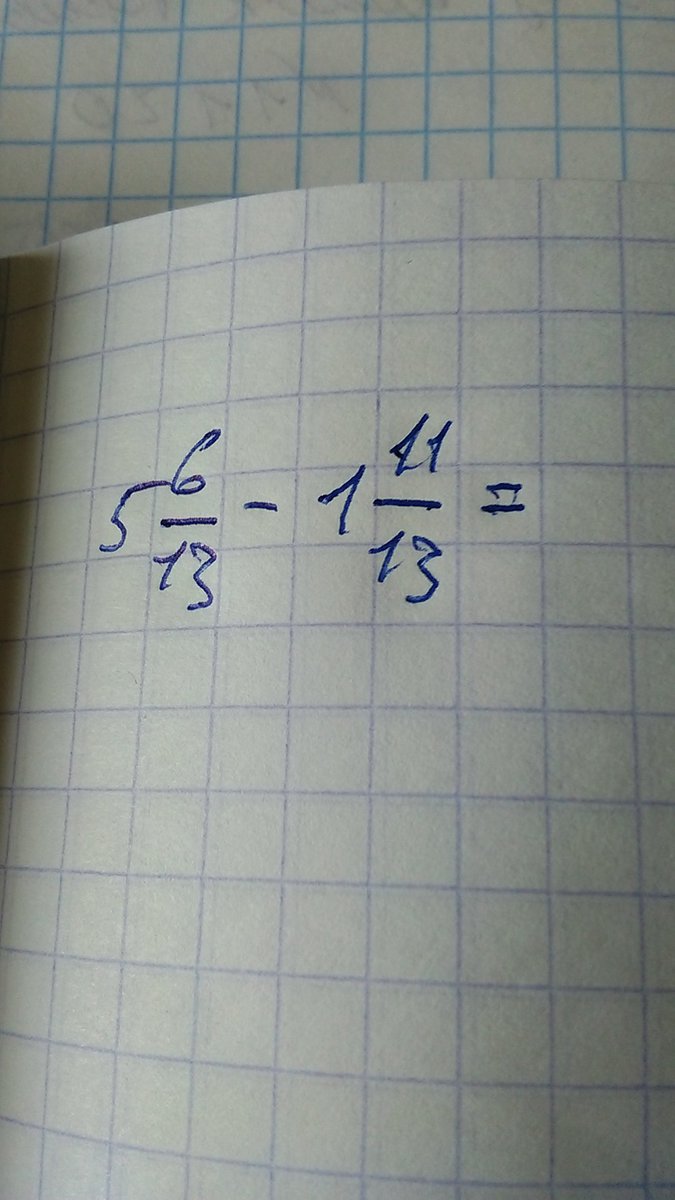 5 6/13 - 1 11/13 =